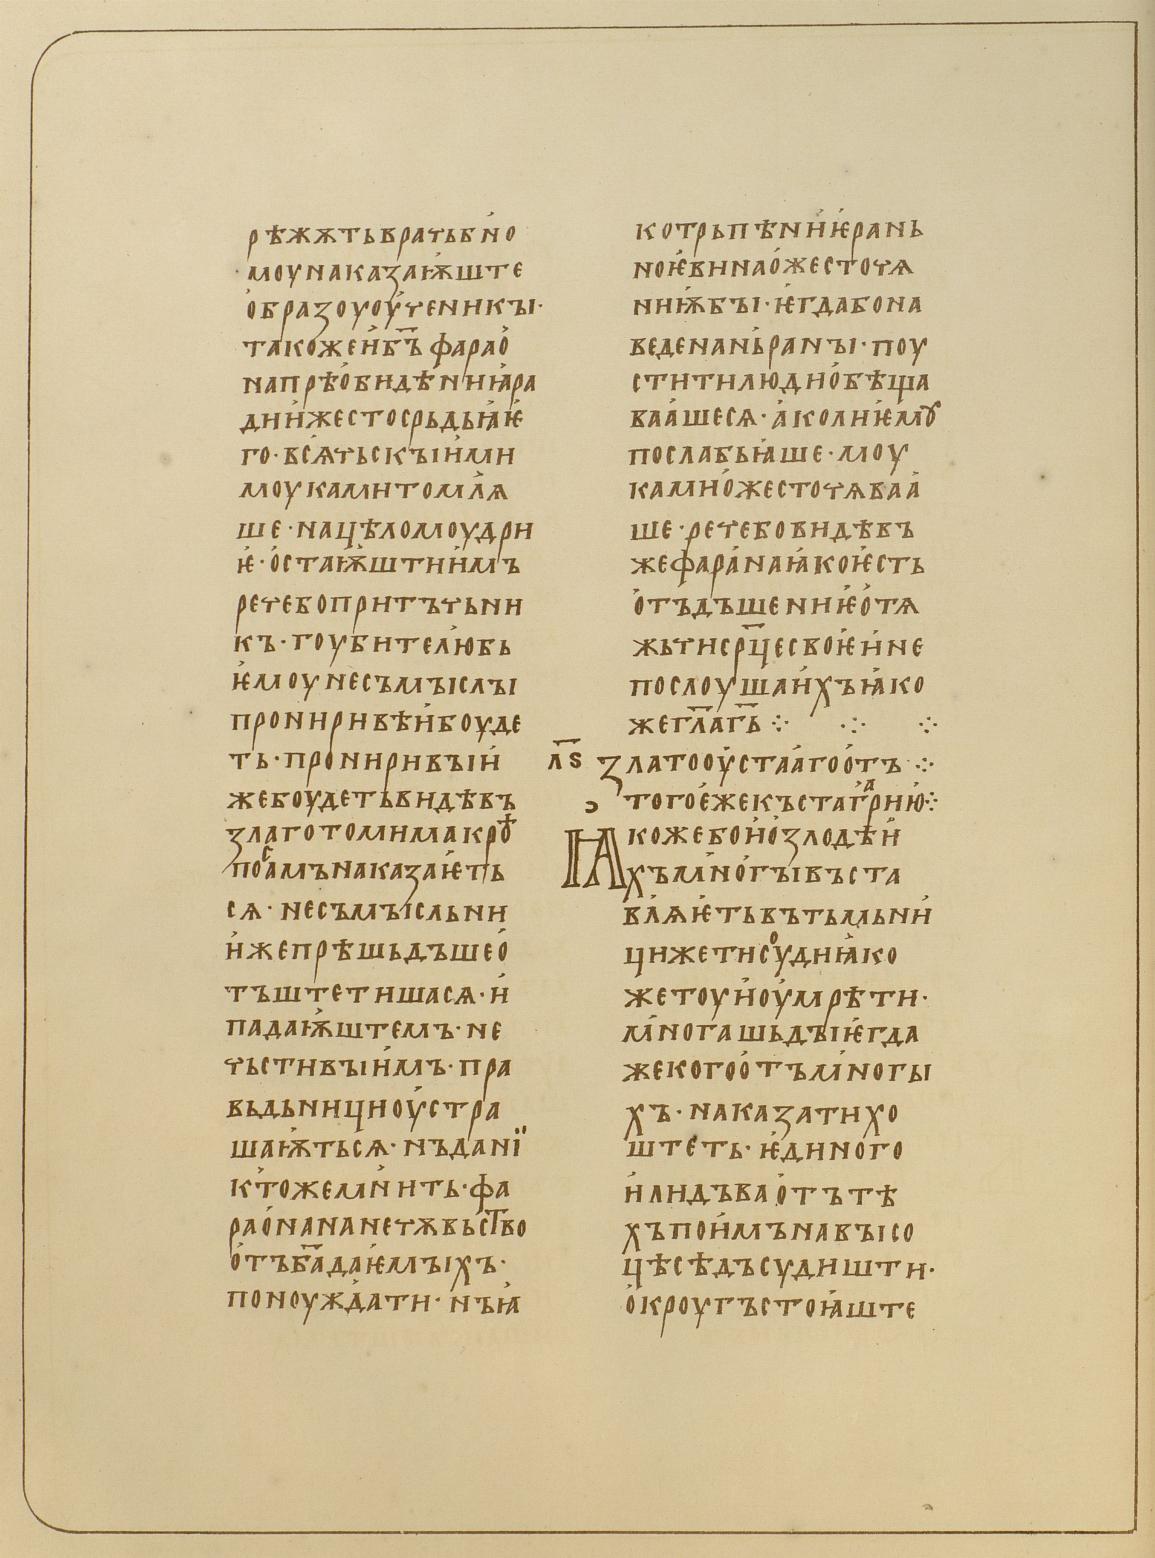 рѣжѫть врачьби҆но
моу наказаѭште
о҆бразоу оу҆ченикы·
такоже и҆ б҃ъ фарао҆
на прѣо҆бидѣниꙗ ра
ди и҆ жестосрьдьꙗ ѥ
го· всѧчьскыи҆ми
моуками томлꙗ
ше· на цѣломоудри
ѥ· о҆стаѭштиимъ
рече бо притъчьни
къ· гоубителю бь
ѥмоу несъмыслы
пронири вѣи҆ боуде
ть· прониривыи҆
же боудеть видѣвъ
зла готоми ма крѣ
поcамъ наказаѥть
сѧ· несъмысльни
и҆же прѣшьдъше о҆
тъштетишасѧ· и҆
падаѭштемъ· не
чьстивыи҆мъ· пра
вьдьници оу҆стра
шаѭтьсѧ· нъ да нї
кꙿтоже мꙿнить· фа
рао҆на нанечѫвьство
о҆тъ б҃а даѥмыхъ·
поноуждати· нъ ꙗ
ко трьпѣниѥ рань
ноѥ вина о҆жесточѧ
ниѭ бы· ѥгда бо на
ведена ньі раны· поу
стити люди о҆бѣшта
вааше сѧ· а҆ коли ѥмꙋ
послабьꙗше· моу
ками о҆жесточѧваа
ше· рече бо видѣвъ
же фарана ꙗко ѥсть
о҆тъдъшениѥ о҆тѧ
жьчи ср҃це своѥ и҆ не
послоуша ихъ ꙗко
же гл҃а г҃ь ⁘ ⁘ ⁘
л҃ѕ златооу҆стааго о҆тъ ⁘
того е҆же къ стагрию⁘
ꙗкоже бо и҆ о҆ злодѣи
хъ мꙿногы въста
влꙗѥть въ тьмьни
ци же ти соудиꙗ ко
же тоу и҆ оу҆мрѣти·
мꙿногашьды ѥгда
же кого о҆тъ мꙿногы
хъ· наказати хо
штеть· ѥдиного
и҆ли дъва о҆тъ тѣ
хъ пои҆мъ на высо
цѣ сѣдъ судишти·
о҆кроугъ стоꙗште